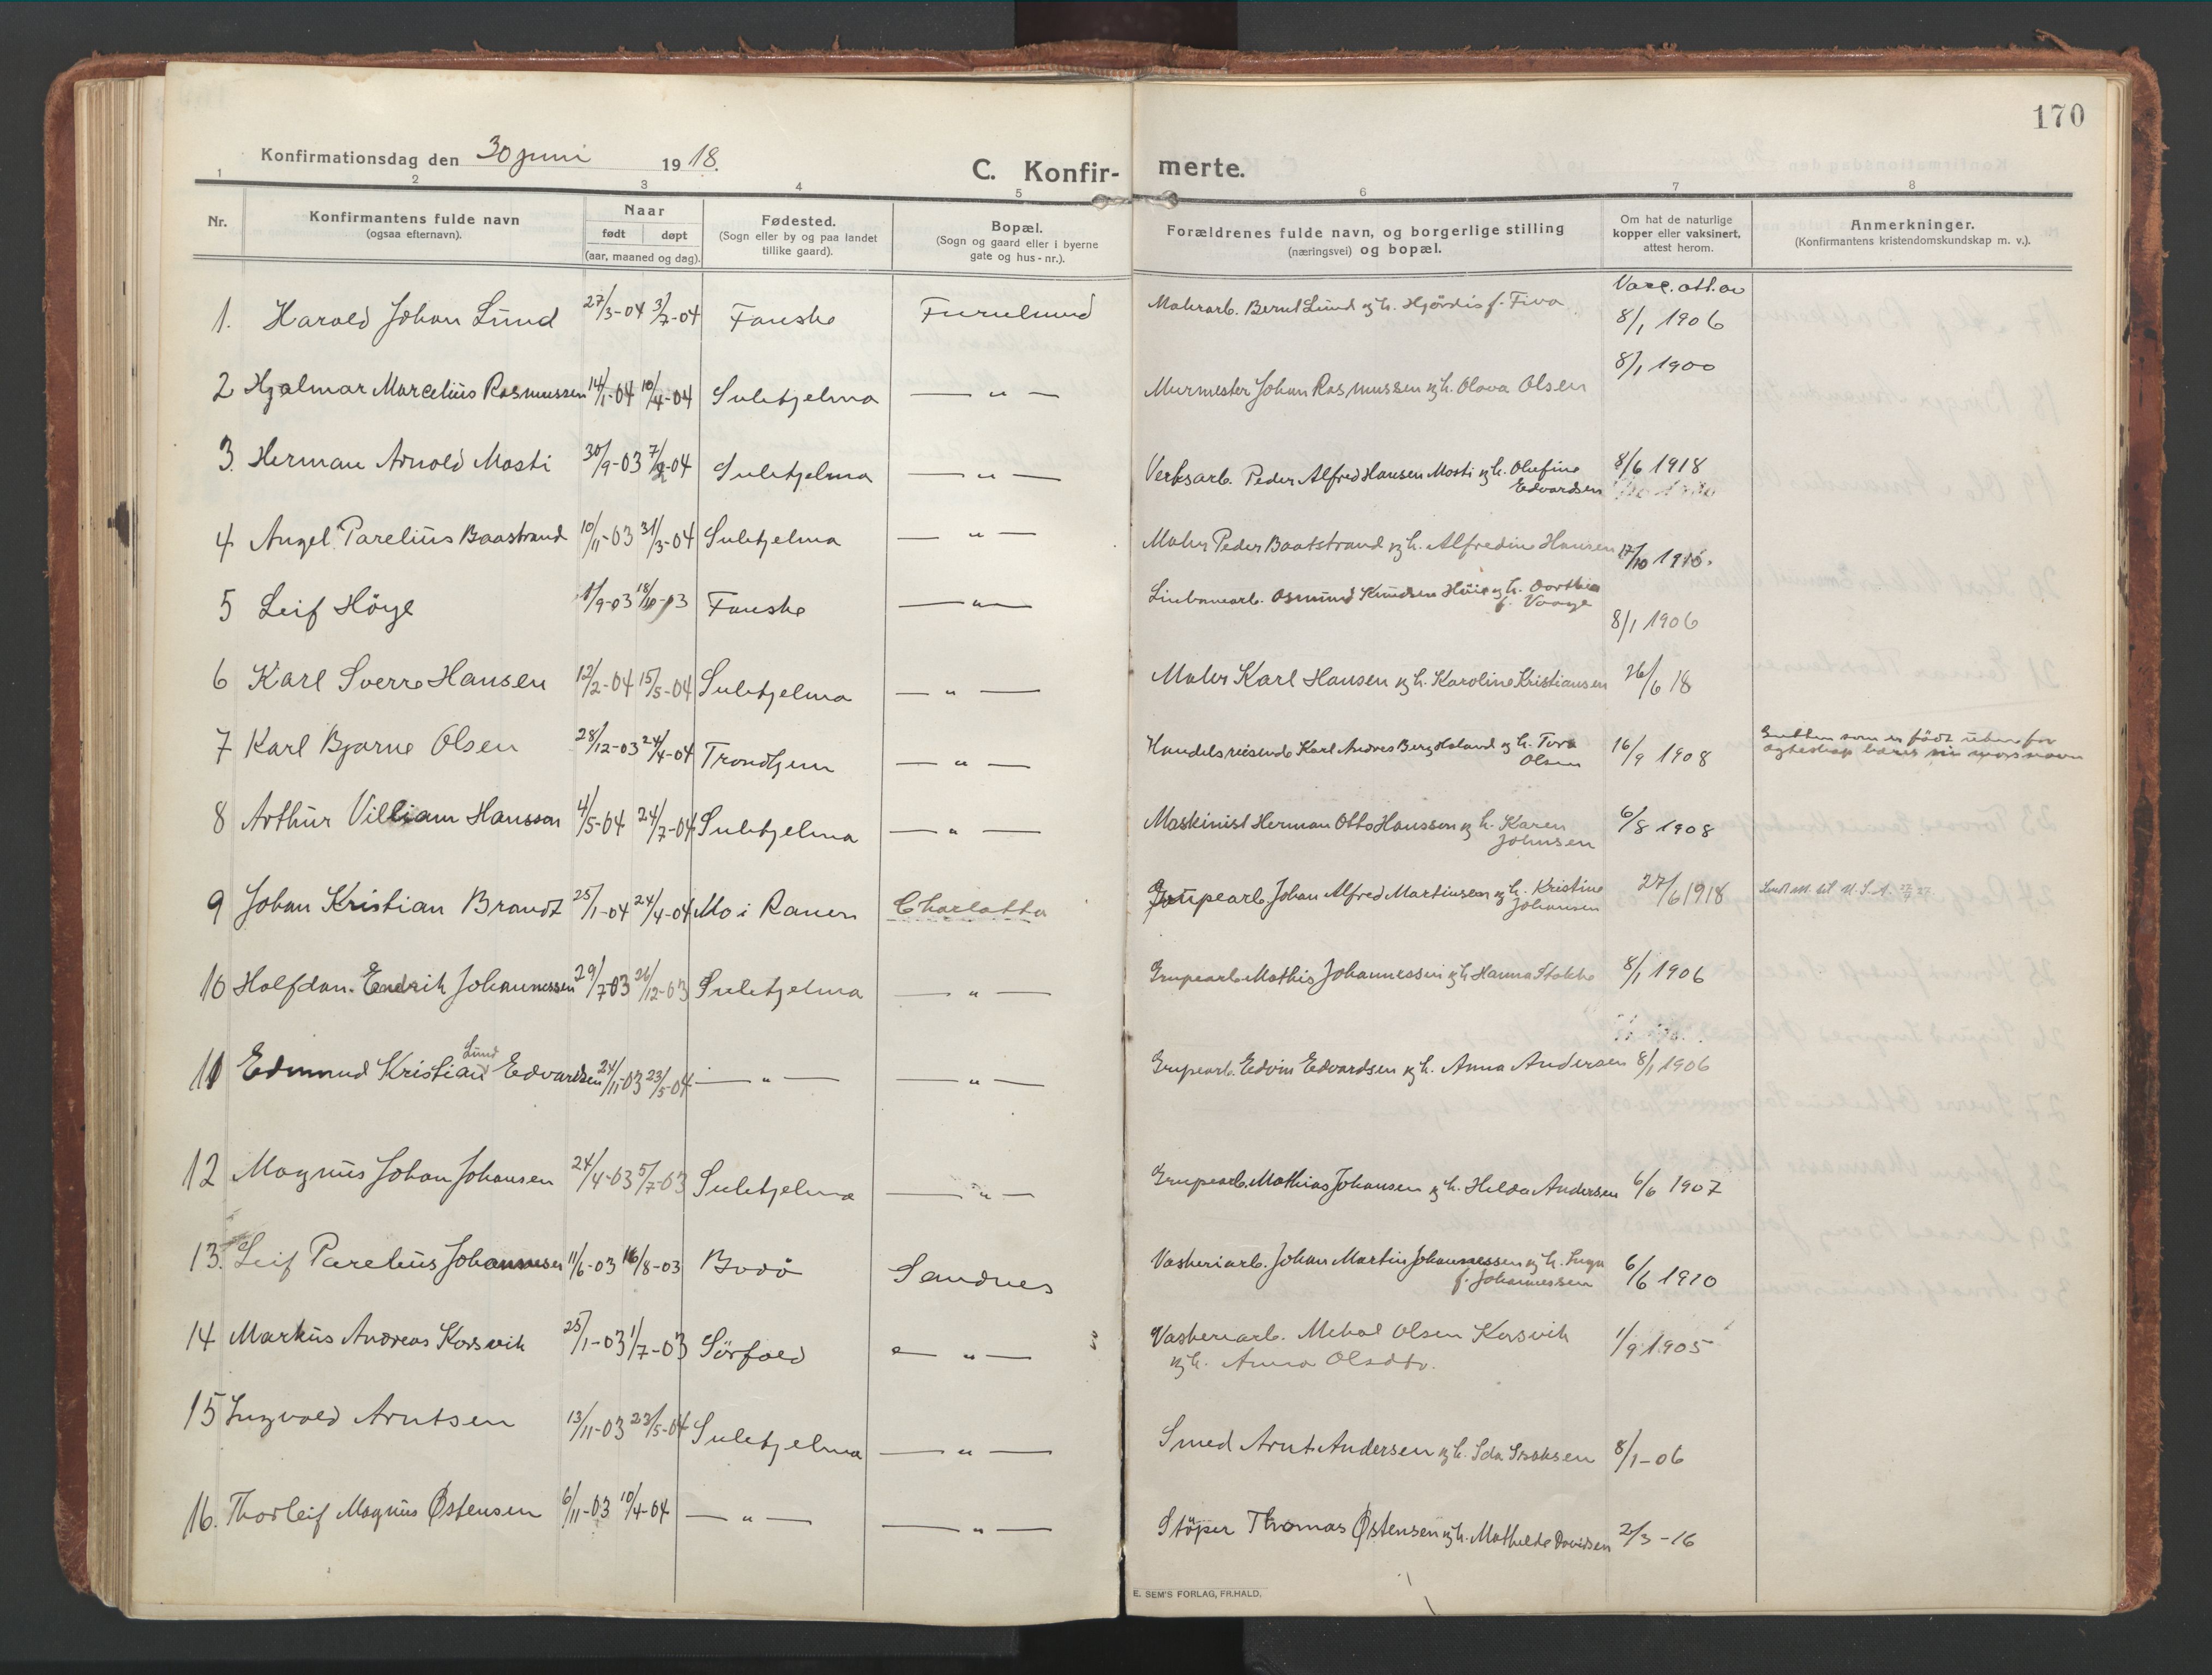 170
Konfirmationsdag den 30 juni 1918.
C. Konfir- merte.
1 2 3 4 5 6 7 8
Nr.
Konfirmantens fulde navn
(ogsaa efternavn).
Naar
født døpt
(aar, maaned og dag).
Fødested.
(Sogn eller by og paa landet
tillike gaard).
Bopæl.
(Sogn og gaard eller i byerne
gate og hus-nr.).
Forældrenes fulde navn, og borgerlige stilling
(næringsvei) og bopæl.
Om hat de naturlige
kopper eller vaksinert,
attest herom.
Anmerkninger.
(Konfirmantens kristendomskundskap m. v.).
1. Harald Johan Lund 27/3-04 3/7-04 Fauske Furulund Malerarb. Bernt Lund og h. Hjördis f. Fiva Vacc. att. av 8/1 1906
2 Hjalmar Marcelius Rasmussen 14/1-04 10/4-04 Sulitjelma — " — Murmester Johan Rasmussen og h. Olava Olsen 8/1 1900
3. Herman Arnold Mosti 30/9-03 7/2-04 Sulitjelma — " — Verksarb. Peder Alfred Hansen Mosti og h. Olufine 8/6 1918
Edvardsen
4 Angel Parelius Baastrand 10/11-03 31/3-04 Sulitjelma — " — Maler Peder Baatstrand og h. Alfredine Hansen 17/10 1916.
5 Leif Höye 1/9-03 18/10-03 Fauske — " — Linbanearb. Osmund Knudsen Höie og h. Dorthea
f. Vaage 8/1 1906
6 Karl Sverre Hansen 12/2-04 15/5-04 Sulitjelma — " — Maler Karl Hansen og h. Karoline Kristiansen 26/6 18
7 Karl Bjarne Olsen 28/12-03 24/4-04 Trondhjem — " — Handelsreisende Karl Andres Berg Holand og h. Tora 16/9 1908 Gutten som er födt utenfor
Olsen ægteskap bærer sin morsnavn
8 Arthur Villiam Hansson 4/5-04 24/7-04 Sulitjelma — " — Maskinist Herman Otto Hansson og h. Karen 6/8 1908
Johnsen
9 Johan Kristian Brandt 25/1-04 24/4-04 Mo i Ranen Charlotta Grupearb. Johan Alfred Martinsen og h. Kristine 27/6 1918
Johansen
10 Halfdan Endrik Johannessen 29/7-03 26/12-03 Sulitjelma — " — Grupearb. Mathis Johannessen og h. Hanna Stokke 8/1 1906
Lund
11 Edmund Kristian Edvardsen 24/11-03 23/5-04 — " — — " — Grupearb. Edvin Edvardsen og h. Anna Andersen 8/1 1906
12 Magnus Johan Johansen 24/4-03 5/7-03 Sulitjelma — " — Grupearb. Mathias Johansen og h. Hilda Andersen 6/6 1907
13. Leif Parelius Johannesen 11/6-03 16/8-03 Bodö Sandnes Vaskeriarb. Johan Martin Johannessen og h. Inga 6/6 1910
f. Johannessen
14 Markus Andreas Korsvik 25/1-03 1/7-03 Sörfold — " — Vaskeriarb. Mikal Olsen Korsvik 1/9 1905
og h. Anna Olsdtr.
15 Ingvald Arntsen 13/11-03 23/5-04 Sulitjelma — " — Smed Arnt Andersen og h. Ida Isaksen 8/1-06
16. Thorleif Magnus Østensen 6/11-03 10/4-04 — " — — " — Stöper Thomas Østensen og h. Mathilde Davidsen 2/3-16
E. SEM'S FORLAG, FR.HALD.